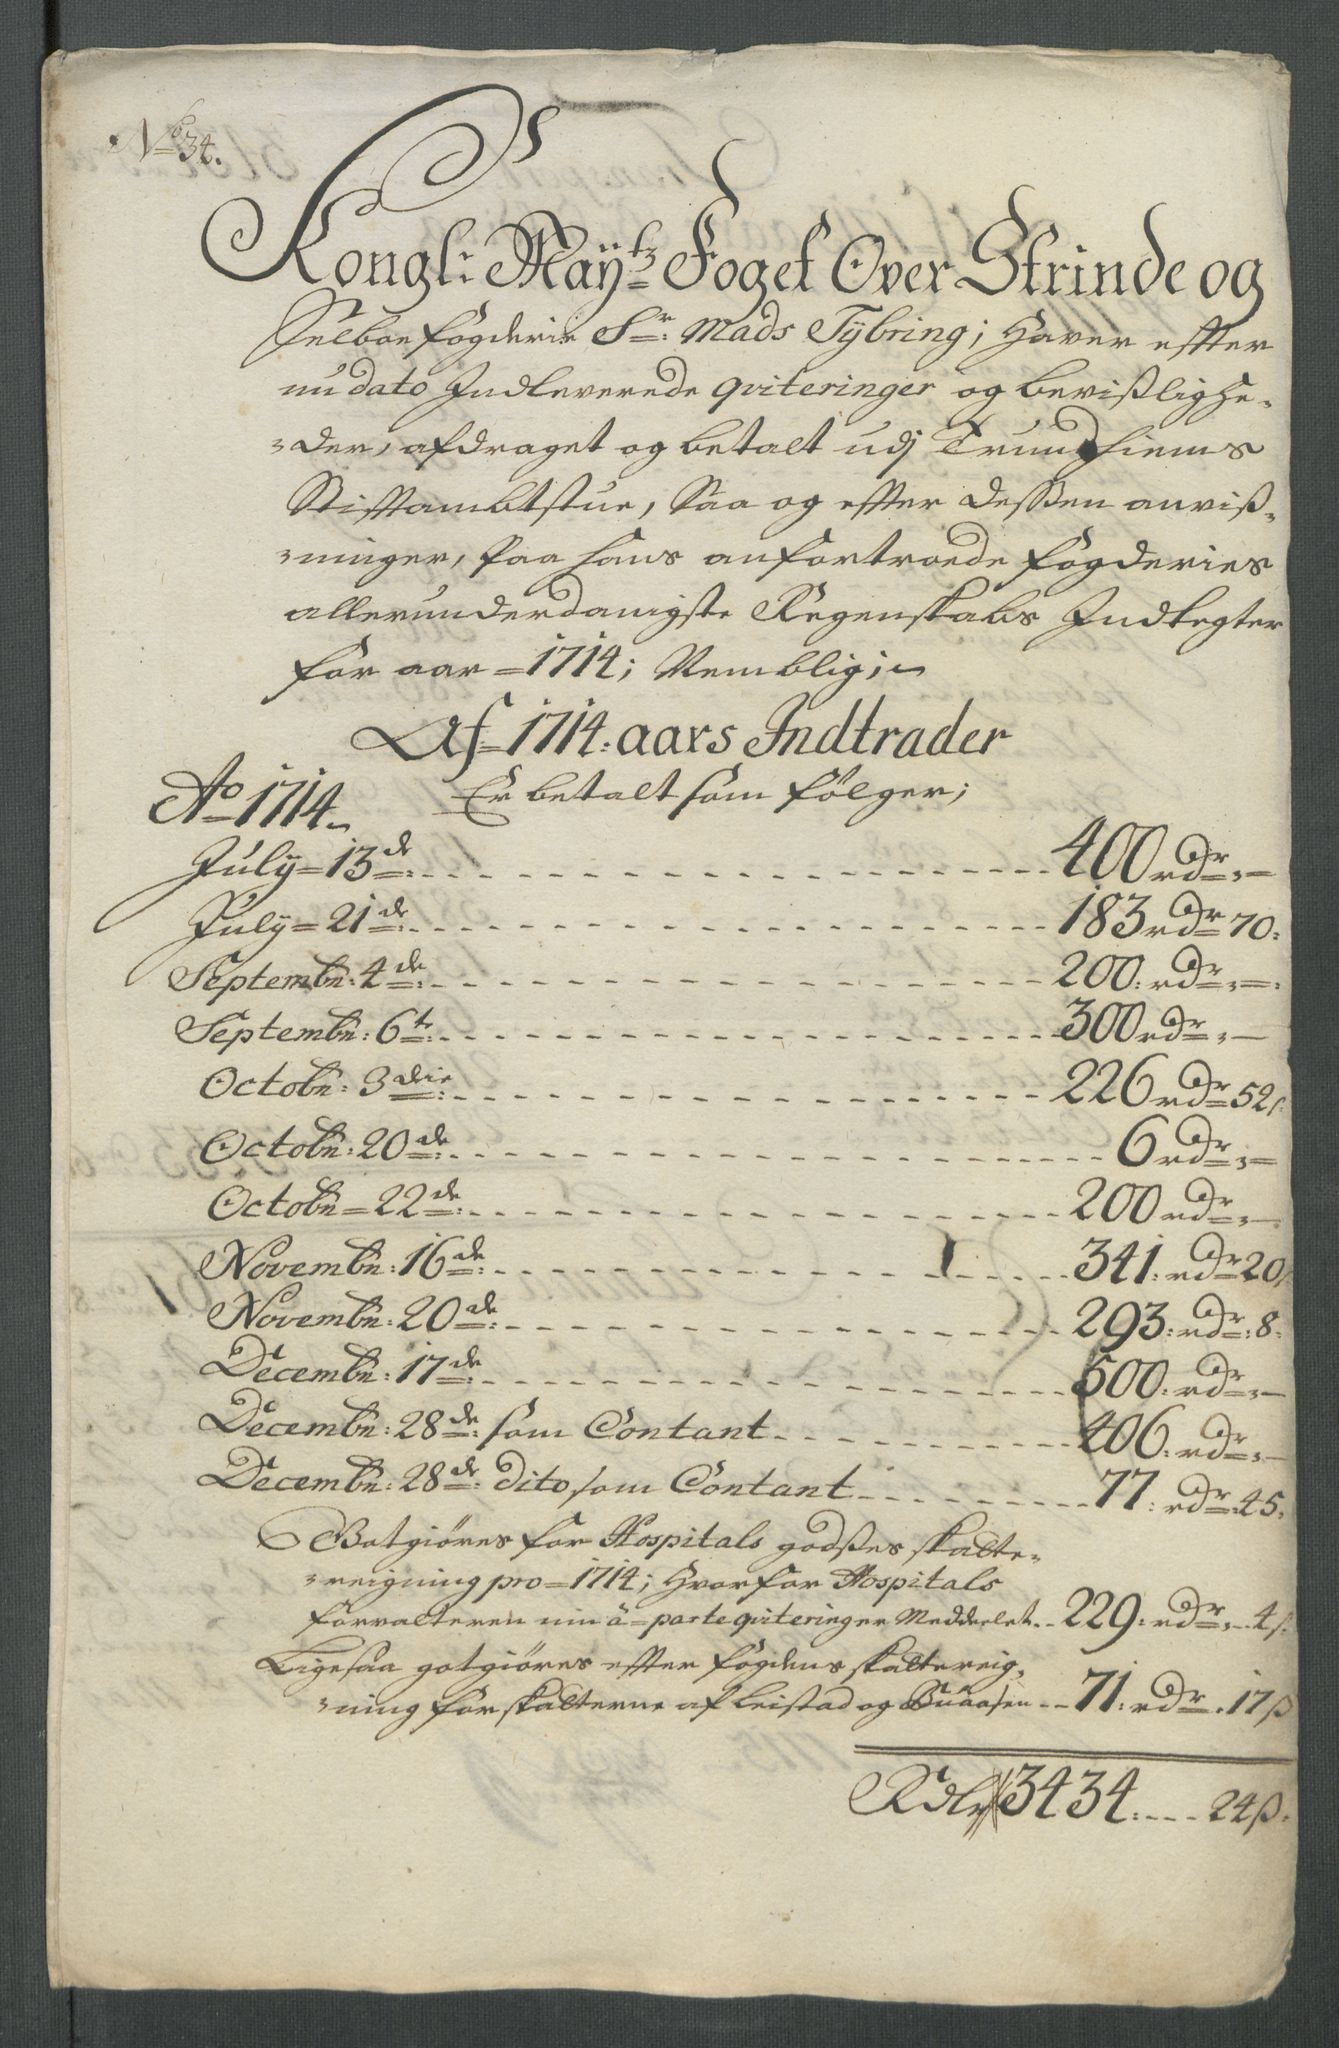 No 34.
Kongl: Maÿtz Foget Over Strinde og
Selboe fögderie Sr: Mads Tÿbring; Haver efter
nu dato Indleverede qviteringer og bevißlighe-
-der, afdraget og betalt udj Trundhiems
Stiftambtstue, Saa og efter desßen anviß-
-ninger, paa hans anfortroede fögderies
allerunderdanigste Regenskabs Indtegter
for aar =1714; Nemblig;
Af 1714: aars Indtrader
Ao 1714 Er betalt som fölger;
July=13de: 400 rdr -
July=21de: 183 rdr 70:
Septembr: 4de: 200: rdr -:
Septembr: 6te: 300 rdr -
Octobr: 3die: 226 rdr 52s:
Octobr: 20de: 6 rdr -
Octobr=22de: 200 rdr -
Novembr: 16de: 341: rdr 20s
Novembr: 20de: 293: rdr: 8:
Decembr: 17de: 500: rdr -
Decembr: 28de: som Contant 406: rdr -
Decembr: 28de: dito som Contant 77: rdr: 45:
Gotgiöres for Hospitals godßes skatte-
-reigning pro=1714; Hvorfor Hospitals
forvalteren min â=parte qviteringer Meddeelet 229: rdr 4s:
Ligesaa gotgiöres efter fogdens skattereig-
-ning for skatterne af Leistad og Buaasen 71: rdr. 17ß
Rdlr 3434: 24ß.